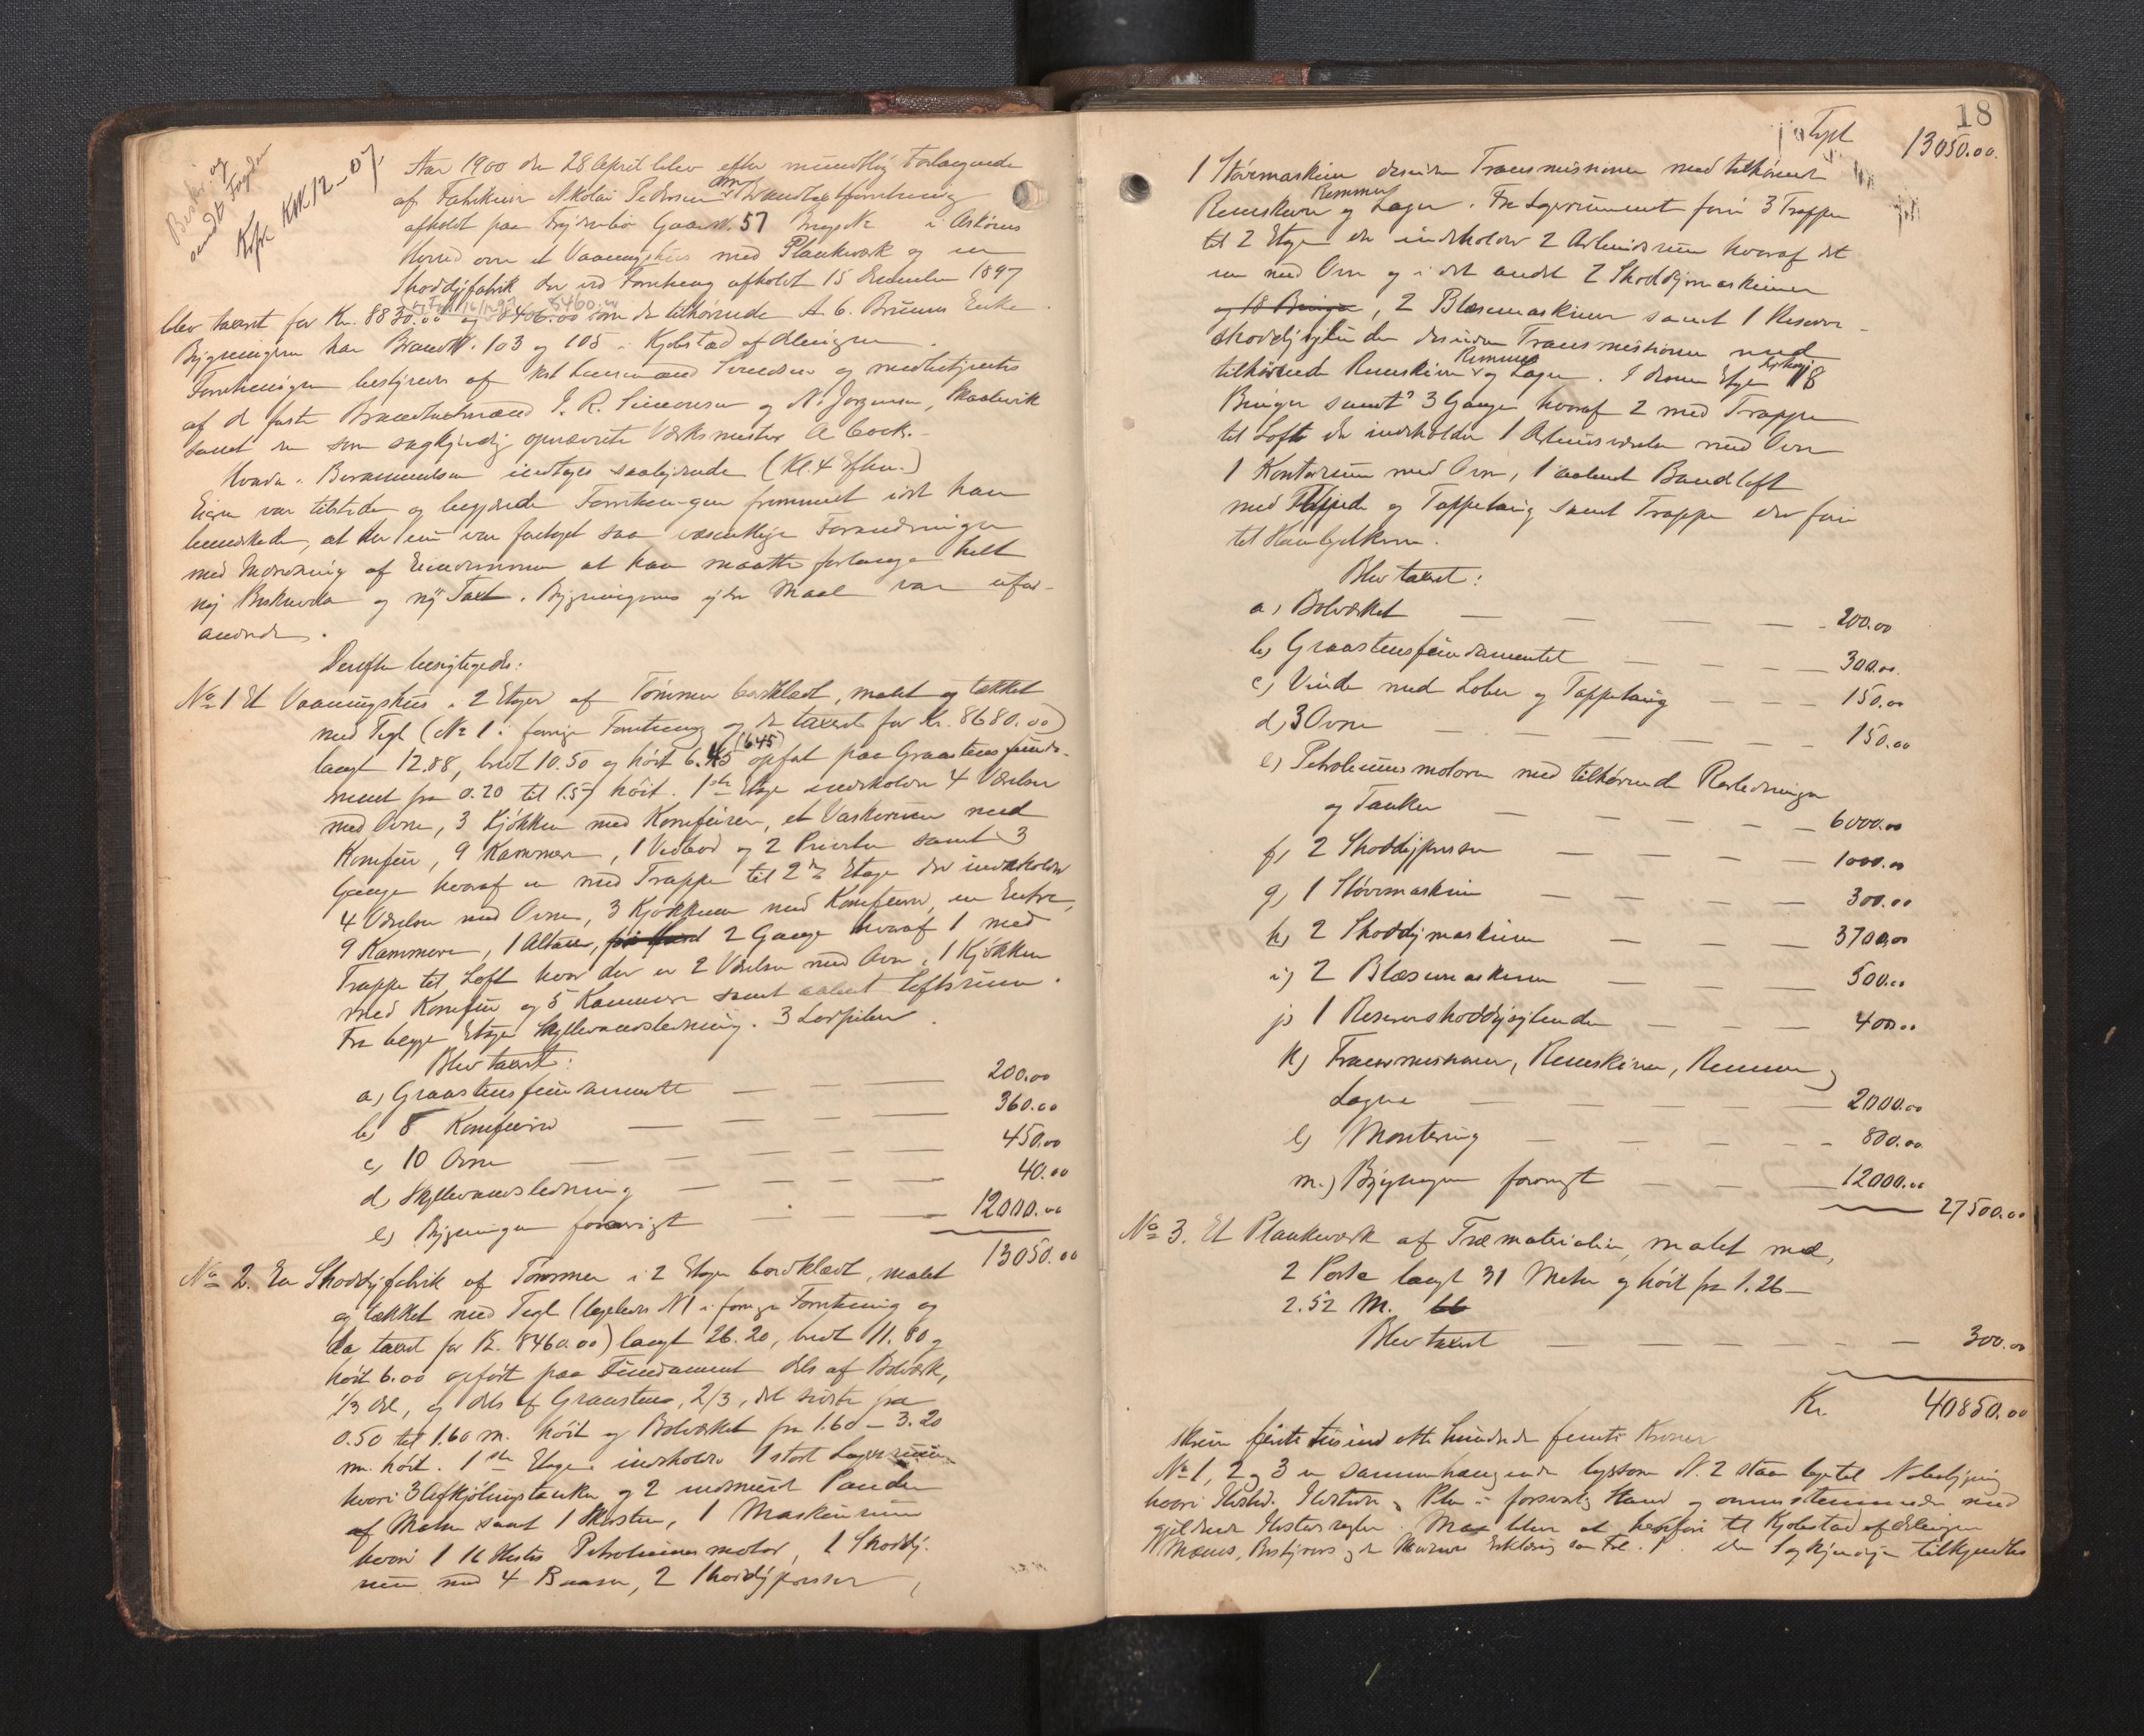 Beskr. og
sendt Fogden
Kofr KK 12-07.
Aar 1900 den 28 April blev efter mundtlig Forlangende
af Fabrikeier Nikolai Pedersen Branntaxtforretning
afholdt paa Gaards N. 57 Brugs No i Askøens
Herred over et Vaaningshus med Plankeværk og en
Shoddyfabrik der ved Forretning afholdt 15 December 1897
blev taxeret for Kr. 8830.00 og 8460.00 som da tilhørende A. C. Bruuns Enke
Bygningerne har BrandN. 103 og 105 i Kjøbstad afdelingen.
Forretningen bestyres af Lensmand og medbetjentes
af de faste Brandtaxtmænd J. R. Simonsen og N. Jørgensen,
samt den som sagkyndig opnævnte Værksmester A Cock.
Hvorda. Berammelsen indtages saalydende (Kl. 4 Efm.)
Eieren var tilstede og begjærede Forretningen fremmet idet han
bemærkede, at der nu var foretaget saa væsentlige Forandringer
med Indredning af Eiendommen at han maatte forlange helt
ny Beskrivelse og ny Taxt. Bygningernes ydre Maal var ufor-
andrede.
Derefter besigtigedes:
No 1 Et Vaaningshus i 2 Etager af Tømmer bordklædt, malet og tækket
med Tegl (No 1 i forrige Forretning og da taxeret for Kr. 8680.00)
langt 12.88, bredt 10.50 og høit 6.45 (645) opført paa Graastensfunda-
ment fra 0.20 til 1.57 høit. 1ste Etage indeholder 4 Værelser
med Ovne, 3 Kjøkken med Komfurer, et Vaskerum med
Komfur, 9 Kammere, 1 Vedbod og 2 Priveter samt 3
Gange hvoraf en med Trappe til 2den Etage der indeholder
4 Værelser med Ovne, 3 Kjøkkener med Komfurer, en Entre,
9 Kammere, 1 Altan, 2 Gange hvoraf 1 med
Trappe til Loft hvor der er 2 Værelser med Ovn, 1 Kjøkken
med Komfur og 5 Kammere samt aabent Loftsrum.
Fra begge Etager Skyllevandsledning. 3 Lodpiber.
Blev taxeret:
a) Graastensfundamentet — — — 200.00
b) 8 Komfurer — — — 360.00
c) 10 Ovne — — — 450.00
d) Skyllevandsledning — — — 40.00
e) Bygningen forøvrigt — — 12000.00
13050.00
No 2. En Shoddyfabrik af Tømmer i 2 Etager bordklædt, malet
og tækket med Tegl (ligeledes N 1 i forrige Forretning og
da taxeret for K. 8460.00) langt 26.20, bredt 11.80 og
høit 6.00 opført paa Fundament dels af Bolværk,
1/3 del, og dels af Graasten, 2/3, det sidste fra
0.50 til 1.60 m. høit og Bolværket fra 1.60 – 3.20
m. høit. 1ste Etage indeholder 1 stort Lagerrum
hvori 3 Afkjølingstanker og 2 indmuret Pander
af Metal samt 1 Skorsten, 1 Maskinrum
hvori 1 16 Hestes Petroleumsmotor, 1 Shoddy-
rum med 4 Baaser, 2 Shoddypresser,
18
Trpt 13050.00.
1 Støvmaskine desuden Transmissioner med tilhørende
Remskiver Remmer og Lager. Fra Lagerrummet fører 3 Trapper
til 2 Etage der indeholder 2 Arbeidsrum hvoraf det
ene med Ovn og i det andet 2 Shoddymaskiner
og 18 Binger, 2 Blæsemaskiner samt 1 Reserve-
shoddycylinder desuden Transmissioner med
tilhørende Remskiver Remmer og Lager. I denne Etage 18
Binger samt 3 Gange hvoraf 2 med Trapper
til Loft der indeholder 1 Arbeidsværelse med Ovn
1 Kontorrum med Ovn, 1 aabent Bandloft
med og Tappetaug samt Trappe der fører
til Hanebjelkerne.
Blev taxeret:
a) Bolværket — — — 200.00
b) Graastensfundamentet — — — 300.00.
c) Vinde med Lober og Tappetaug — — — 150.00
d) 3 Ovne — — — 150.00
e) Petroleumsmotoren med tilhørende Rørledninger
og Tanker — — — 6000.00
f) 2 Shoddypresser — — — 1000.00
g) 1 Støvmaskin — — — 300.00
h) 2 Shoddymaskiner — — — 3700.00
i) 2 Blæsemaskiner — — — 500.00
j) 1 Reserveshoddycylender — — — 400.00
k) Transmissioner, Remskiver, Remmer og
Lagere — — — 2000.00
l) Montering — — — 800.00
m.) Bygningen forøvrigt — — 12000.00
27500.00
No 3. Et Plankeværk af Træmaterialier, malet med,
2 Porte langt 31 Meter og høit fra 1.26 –
2.52 M.
Blev taxeret — — — 300.00
Kr. 40850.00
skriver firti tusind otte hundrede femti Kroner
No 1, 2 og 3 er sammenhængende ligesom N. 2 staar lige til Nabobygning
hvori Ildsted. Ildsteder og Piber i forsvarlig Stand og overensstemmende med
gjældende Ildstedsregler. Maa blive at henføre til Kjøbstad afdelingen
Mænds, Bestyrers og Erklæring som Fol. 1. den Sagkyndige tilkjendtes